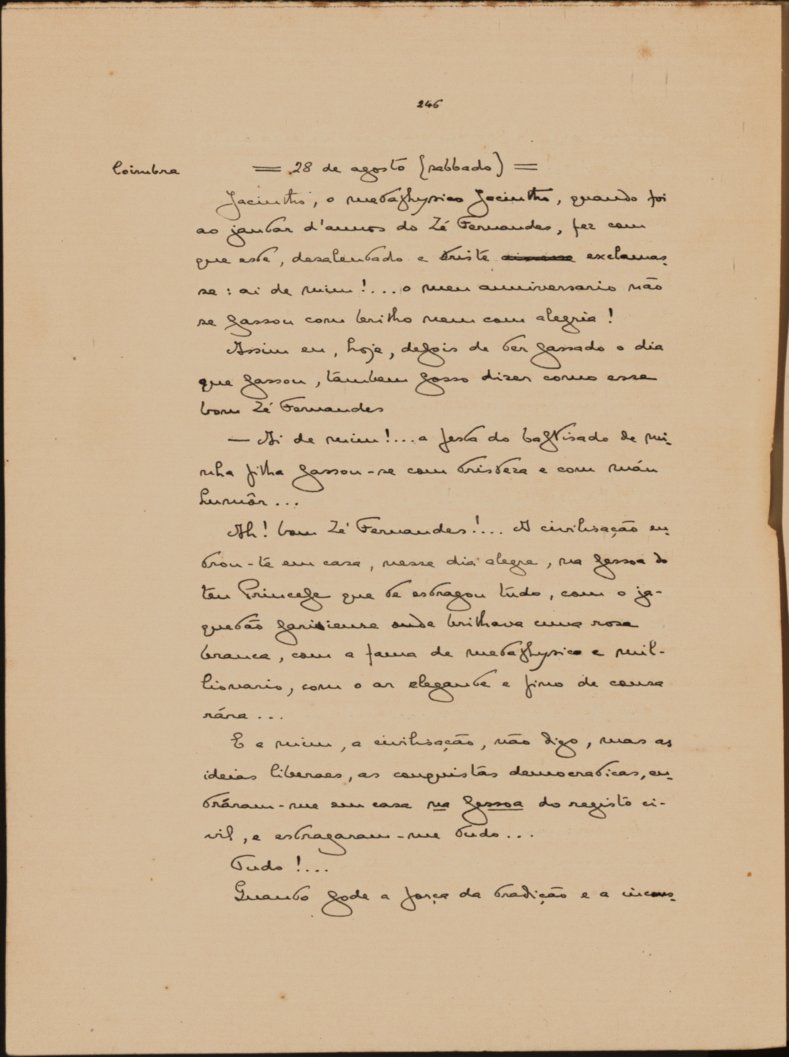 246
Coimbra = 28 de agosto (sabbado) =
Jacintho, o metaphysico Jacintho, quando foi
ao jantar d'annos do Zé Fernandes, fez com
que este, desalentado e triste exclamas-
se: ai de mim!... o meu anniversario não
se passou com brilho nem com alegria!
Assim eu, hoje, depois de ter passado o dia
que passou, tambem posso dizer como esse
bom Zé Fernandes
— Ai de mim!... a festa do baptisado de mi-
nha filha passou-se com tristeza e com máu
humôr...
Ah! bom Zé Fernandes!... A civilisação en-
trou-te em casa, nesse dia alegre, na pessoa do
teu Principe que te estragou tudo, com o ja-
quetão parisiense onde brilhava uma rosa
branca, com a fama de metaphysico e mil-
lionario, com o ar elegante e fino de cousa
rára...
E a mim, a civilisação, não digo, mas as
ideias liberaes, as conquistas democraticas, en-
tráram-me em casa na pessoa do registo ci-
vil, e estragaram-me tudo...
Tudo!...
Quanto pode a força da tradição e a incons-